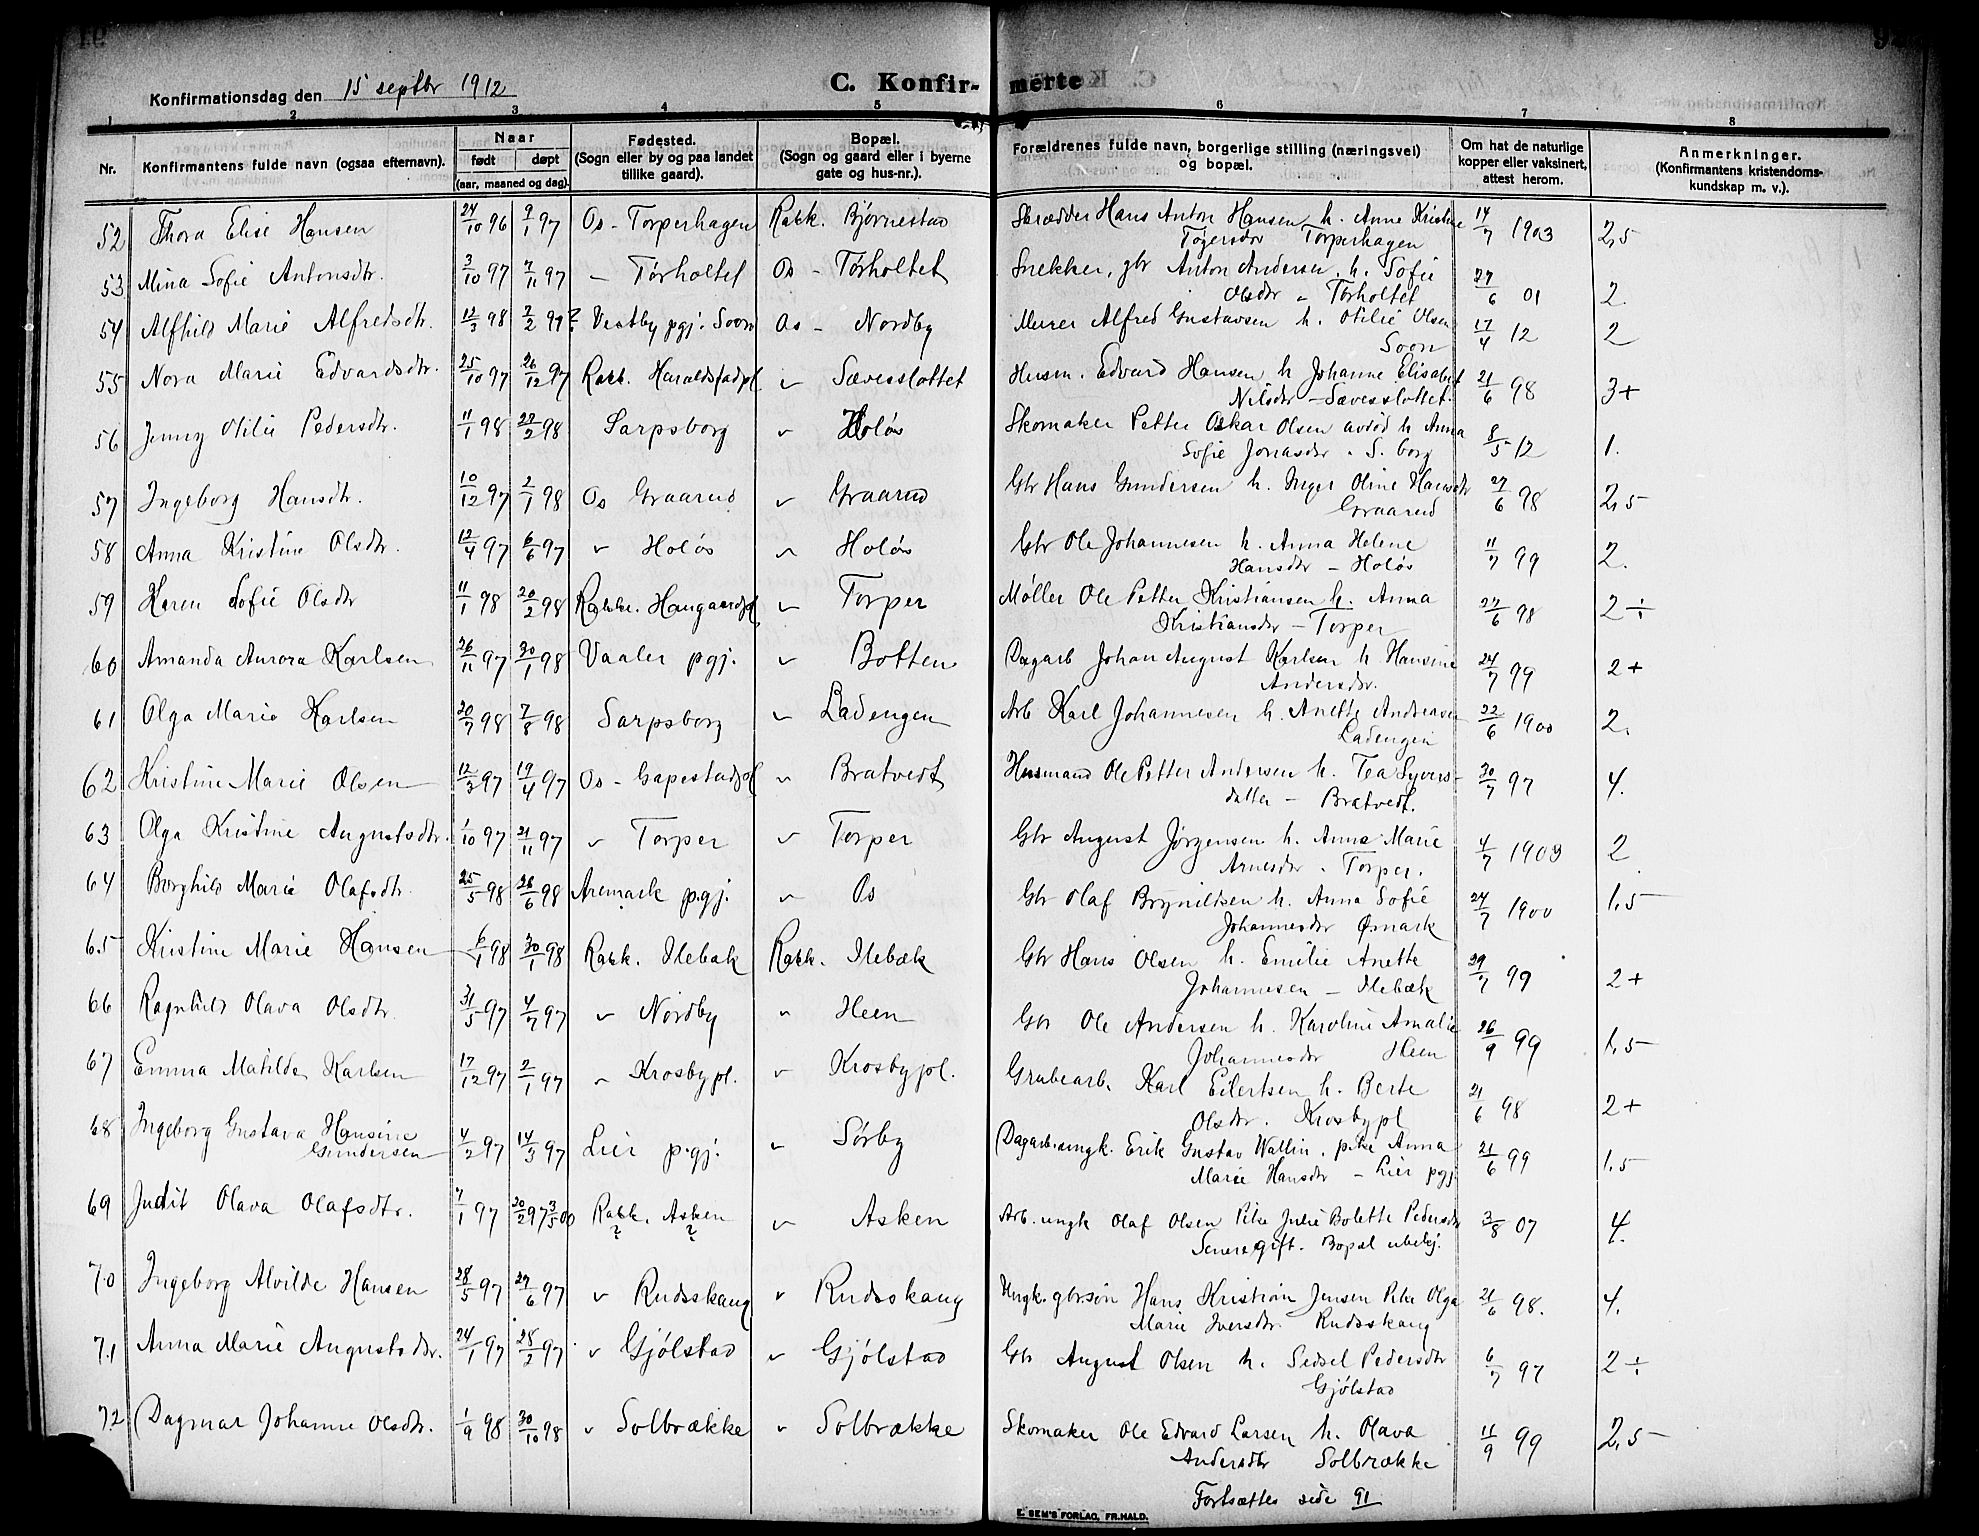 Konfirmationsdag den 15 septbr 1912
C. Konfir- merte
1 2 3 4 5 6 7 8
Nr.
Konfirmantens fulde navn (ogsaa efternavn).
Naar
født døpt
(aar, maaned og dag).
Fødested.
(Sogn eller by og paa landet
tillike gaard).
Bopæl.
(Sogn og gaard eller i byerne
gate og hus-nr.).
Forældrenes fulde navn, borgerlige stilling (næringsvei)
og bopæl.
Om hat de naturlige
kopper eller vaksinert,
attest herom.
Anmerkninger.
(Konfirmantens kristendoms-
kundskap m. v.).
52 Thora Elise Hansen 24/10 96 9/1 97 Os - Torperhagen Rakk. Bjørnestad Skrædder Hans Anton Hansen h. Anne Kristine 14/7 1903 2,5
Torperhagen
53 Mina Sofie Antonsdtr. 3/10 97 7/11 97 - Tørholtet Os - Tørholtet Snekker, gbr Anton Andersen h. Sofie 27/6 01 2.
Olsdtr - Tørholtet
54 Alfhild Marie Alfredsdtr. 12/3 98 7/2 99? Vestby pgj. Soon Os - Nordby Murer Alfred Gustavsen h. Otilie Olsen 17/4 12 2
Soon
55 Nora Marie Edvardsdtr. 25/10 97 26/12 97 Rakk. Haraldstadpl " Sævesslottet Husm. Edvard Hansen h Johanne Elisabet 21/6 98 3+
Nilsdtr - Sævesslottet.
56 Jenny Otilie Pedersdtr. 11/1 98 22/2 98 Sarpsborg " Holøs Skomaker Petter Oskar Olsen avdød h Anna 8/5 12 1.
Sofie Jonasdtr - S. borg
57 Ingeborg Hansdtr. 10/12 97 2/1 98 Os Graarud " Graarud Gbr Hans Gundersen h. Inger Oline Hansdtr 27/6 98 2,5
Graarud
58 Anna Kristine Olsdtr. 12/4 97 6/6 97 " Holøs " Holøs Gbr Ole Johannesen h. Anna Helene 11/7 99 2.
Hansdtr - Holøs
59 Karen Sofie Olsdtr 11/1 98 20/2 98 Rakke. Haugaardpl " Torper Møller Ole Petter Kristiansen h. Anna 27/6 98 2 ÷
Kristiansdtr - Torper
60 Amanda Aurora Karlsen 26/11 97 30/1 98 Vaaler pgj. " Botten Dagarb Johan August Karlsen h Hansine 24/7 99 2+
Andersdtr.
61 Olga Marie Karlsen 20/7 98 7/8 98 Sarpsborg " Ladengen Arb Karl Johannesen h. Anette Andreasen 22/6 1900 2.
Ladengen
62 Kristine Marie Olsen 12/3 97 19/4 97 Os - Gapestadpl " Bratvedt Husmand Ole Petter Andersen h. Tea Syvers- 30/7 97 4.
datter - Bratvedt.
63 Olga Kristine Augustsdtr. 1/10 97 21/11 97 " Torper " Torper Gbr August Jørgensen h. Anne Marie 4/7 1903 2
Arnesdtr - Torper.
64 Borghild Marie Olafsdtr. 25/5 98 26/6 98 Aremark p.gj. " Os Gbr Olaf Brynildsen h. Anna Sofie 24/7 1900 1,5
Johannesdtr Ømark
65 Kristine Marie Hansen 6/1 98 30/1 98 Rakk. Ilebæk Rakk. Ilebæk Gbr Hans Olsen h. Emilie Anette 29/7 99 2+
Johannesen - Ilebæk
66 Ragnhild Olava Olsdtr. 31/5 97 4/7 97 " Nordby " Heen Gbr Ole Andersen h. Karoline Amalie 26/9 99 1,5
Johannesdtr Heen
67 Emma Matilde Karlsen 17/12 97 2/1 97 " Krosbypl. " Krosbypl. Grubearb. Karl Eilertsen h. Berte 21/6 98 2+
Olsdtr. Krosbypl
68 Ingeborg Gustava Hansine 4/2 97 14/3 97 Lier p.gj. " Sørby Dagarb. ungk. Erik Gustav Wallin, pike Anna 21/6 99 1,5
Gundersen Marie Hansdtr - Lier pgj.
69 Judit Olava Olafsdtr. 7/1 97 20/2 97 3/5 00 Rakk. Asken " Asken Arb. ungk Olaf Olsen Pike Julie Bolette Pedersdtr 3/8 07 4.
? ? Senere gift. Bopæl ubekj.
70 Ingeborg Alvilde Hansen 28/5 97 27/6 97 " Rudsskaug " Rudsskaug Ungk. gbrsøn Hans Kristian Jensen Pike Olga 21/6 98. 4.
Marie Iversdtr. Rudsskaug
71 Anna Marie Augustsdtr. 24/1 97 28/2 97 " Gjølstad " Gjølstad Gbr August Olsen h. Sidsel Pedersdtr 6/7 97 2 ÷
Gjølstad
72 Dagmar Johanne Olsdtr. 1/9 98 30/10 98 " Solbrække " Solbrække Skomaker Ole Edvard Larsen h. Olava 11/9 99 2,5
Andersdtr Solbrække
Fortsættes side 91
E. SEM'S FORLAG, FR.HALD.